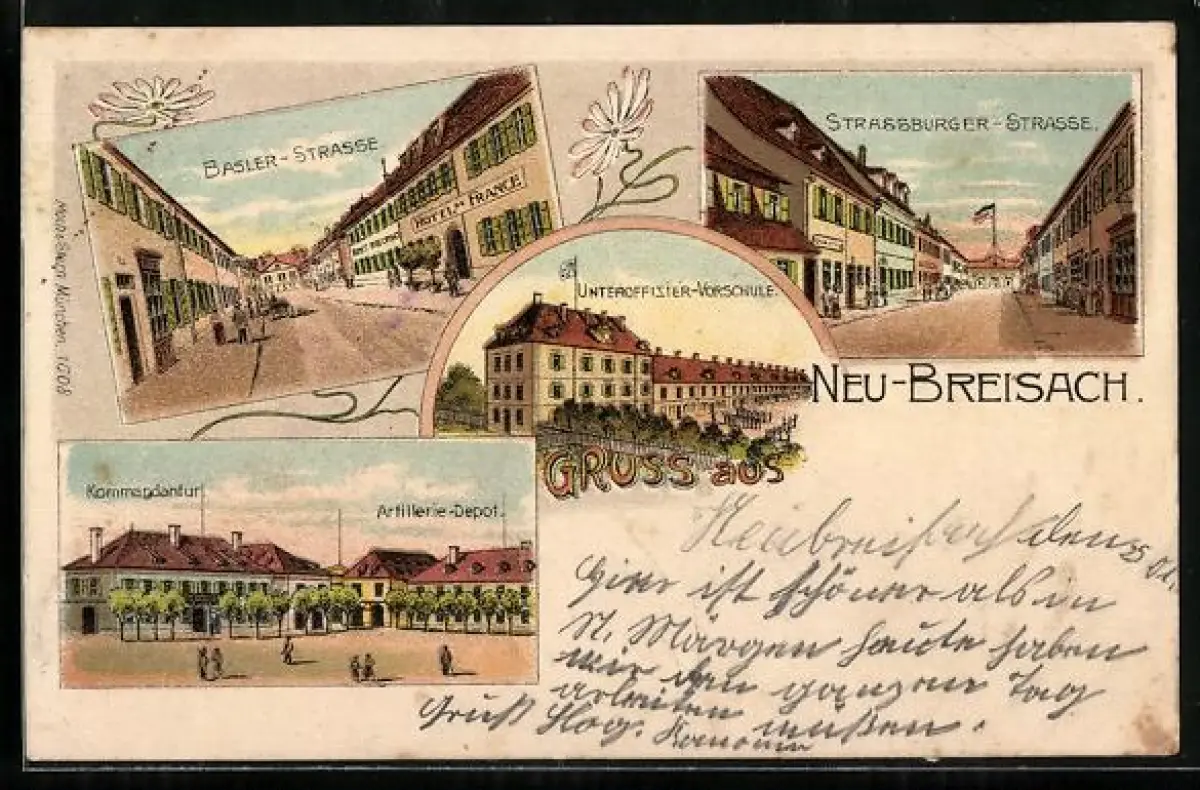 BASLER-STRASSE
HOTEL DE FRANCE
STRASSBURGER-STRASSE.
UNTEROFFIZIER-VORSCHULE.
NEU-BREISACH.
GRUSS aus
Kommandantur
Artillerie-Depot.
München. 1008
Neubreisach den 25
hier ist schöner als in
St. Märgen heute haben
wir den ganzen Tag
arbeiten müßen.
Gruß